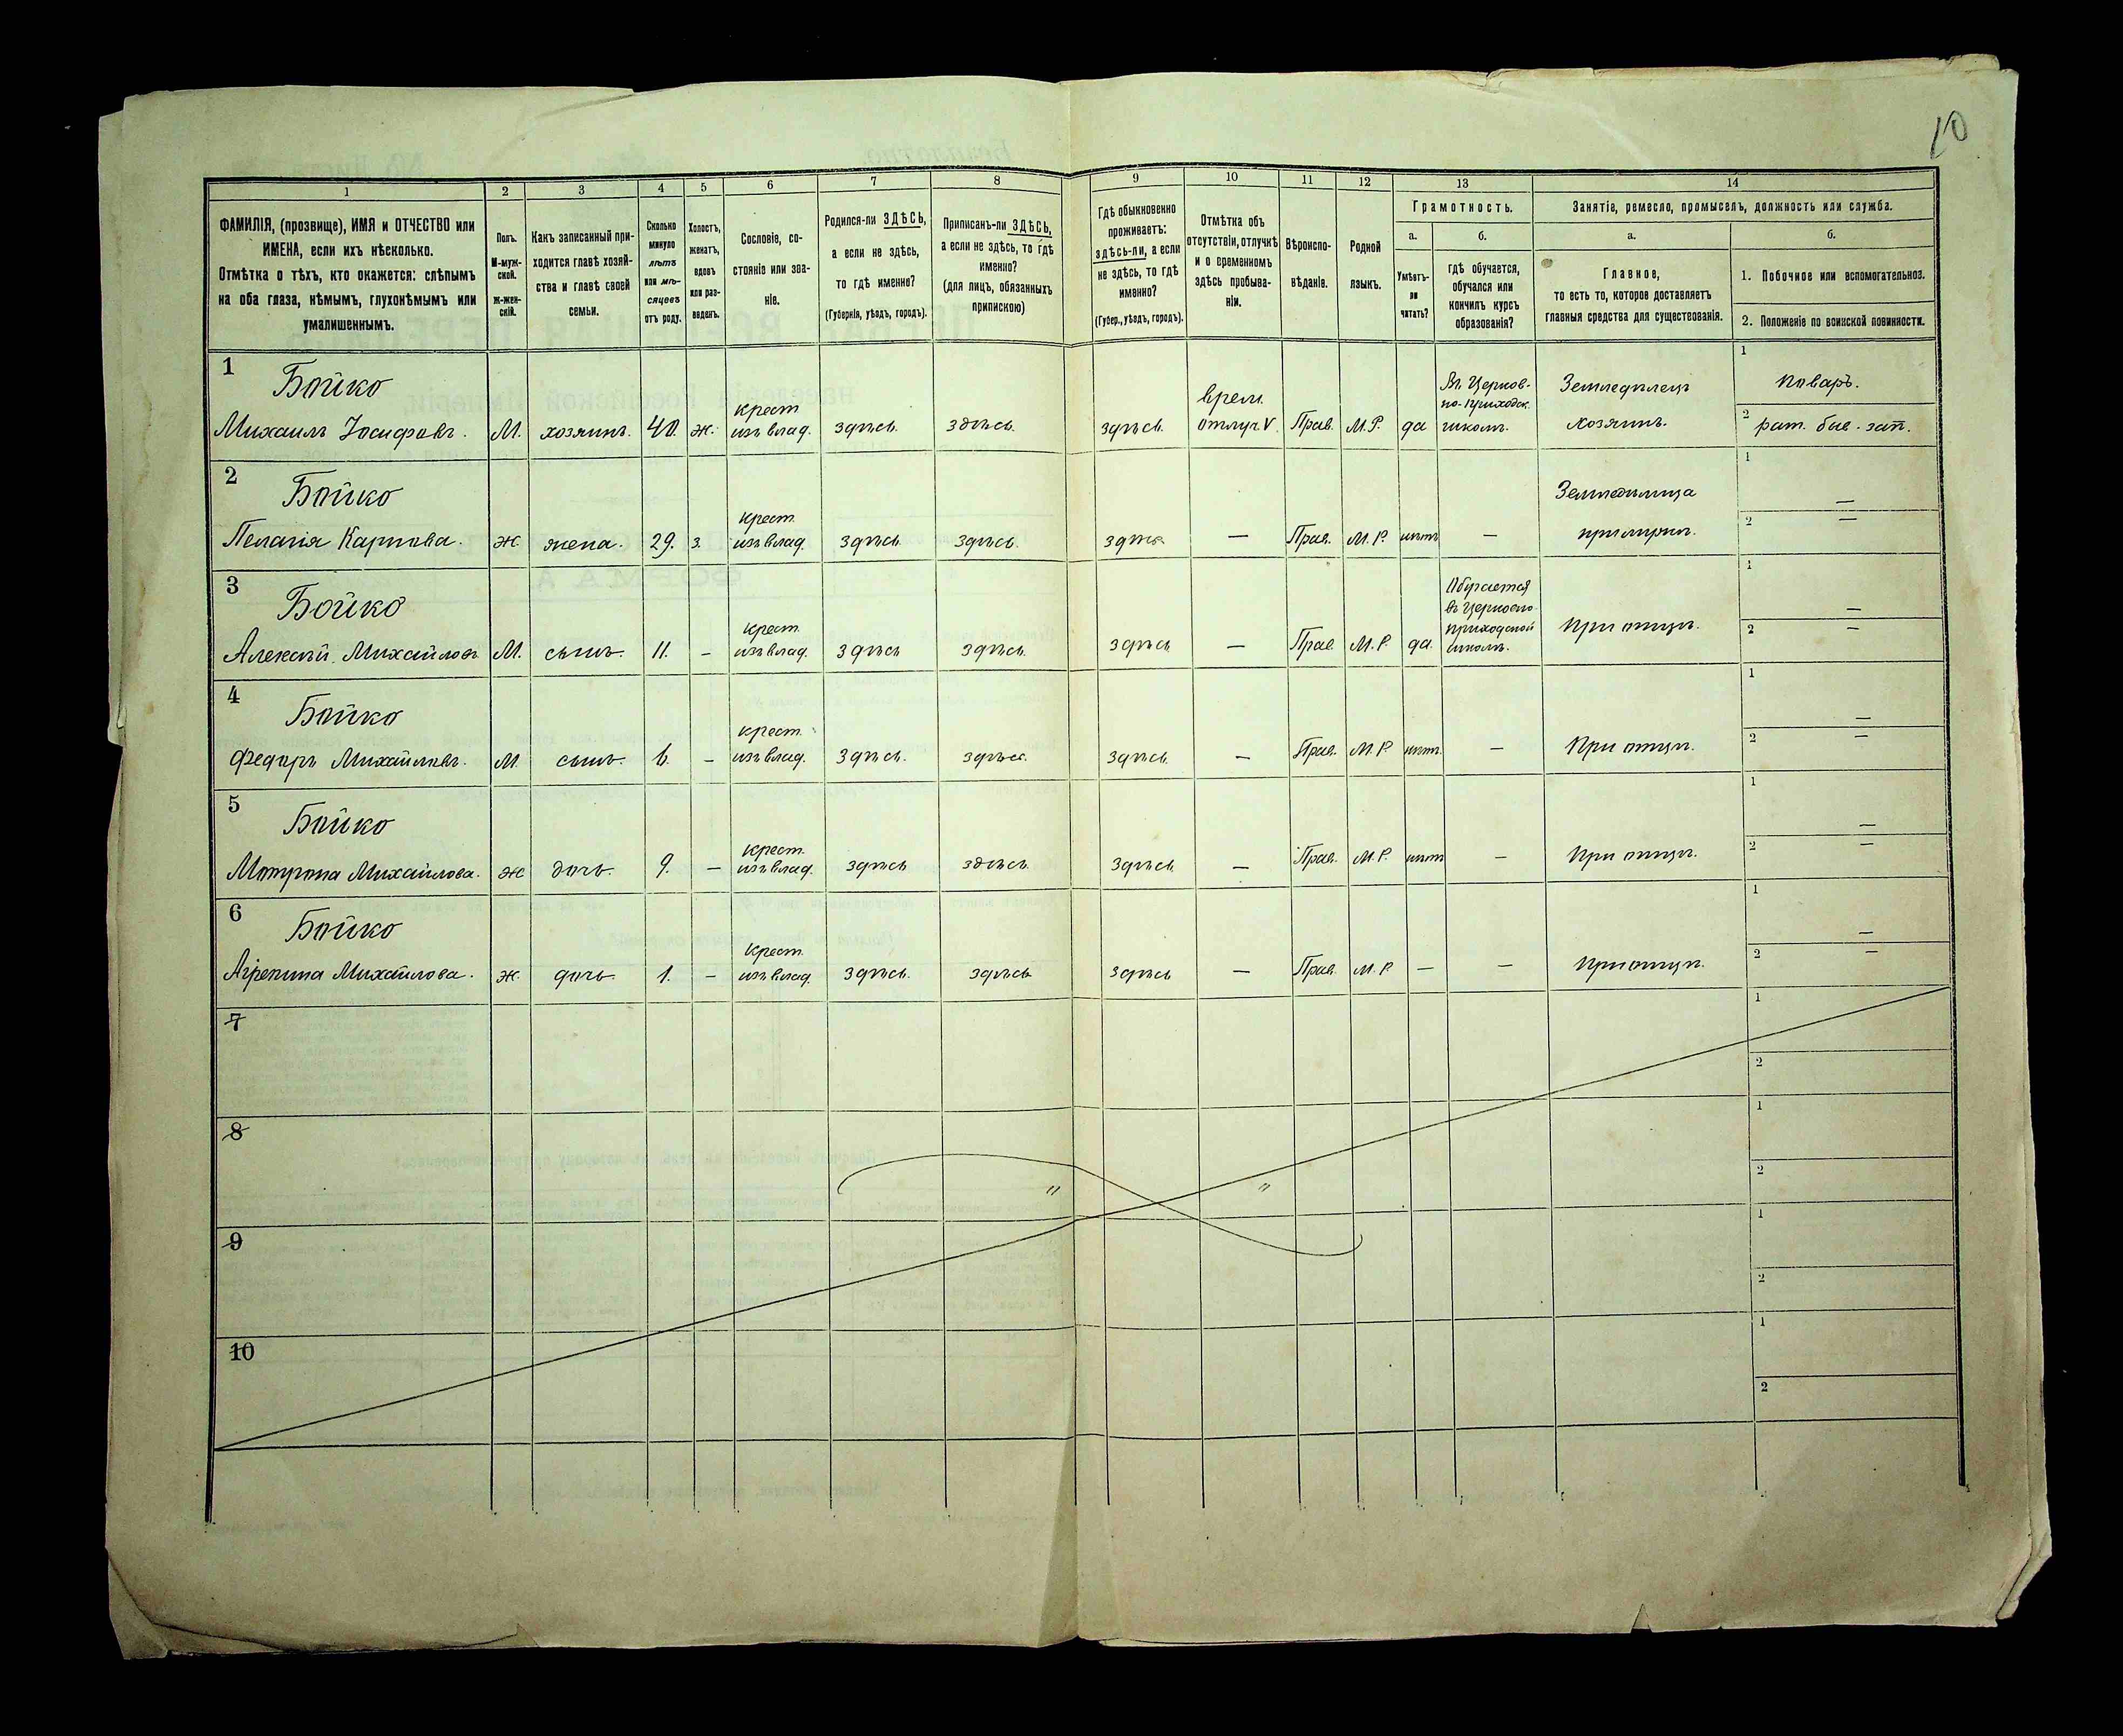 10
1
2
3
4
5
6
7
8
9
10
11
12
13
14
ФАМИЛІЯ, (прозвище), ИМЯ и ОТЧЕСТВО или
ИМЕНА, если ихъ нѣсколько.
Отмѣтка о тѣхъ, кто окажется: слѣпымъ
на оба глаза, нѣмымъ, глухонѣмымъ или
умалишеннымъ.
Полъ.
М-муж-
ской.
ж-жен-
скій.
Какъ записанный при-
ходится главѣ хозяй-
ства и главѣ своей
семьи.
Сколько
минуло
лѣтъ
или мѣ-
сяцевъ
отъ роду.
Холостъ,
женатъ,
вдовъ
или раз-
веденъ.
Сословіе, со-
стояніе или зва-
ніе.
Родился-ли ЗДѢСЬ,
а если не здѣсь,
то гдѣ именно?
(Губернія, уѣздъ, городъ).
Приписанъ-ли ЗДѢСЬ,
а если не здѣсь, то гдѣ
именно?
(для лицъ, обязанныхъ
припискою)
Гдѣ обыкновенно
проживаетъ:
здѣсь-ли, а если
не здѣсь, то гдѣ
именно?
(Губер., уѣздъ, городъ).
Отмѣтка объ
отсутствіи, отлучкѣ
и о временномъ
здѣсь пребыва-
ніи.
Вѣроиспо-
вѣданіе.
Родной
языкъ.
Грамотность.
а.
Умѣетъ-
ли
читать?
б.
гдѣ обучается,
обучался или
кончилъ курсъ
образованія?
Занятіе, ремесло, промыселъ, должность или служба.
а.
Главное,
то есть то, которое доставляетъ
главныя средства для существованія.
б.
1. Побочное или вспомогательное.
2. Положеніе по воинской повинности.
1
Бойко
Михаилъ Іосифовъ.
М.
хозяинъ.
40.
ж.
крест.
изъ влад.
здѣсь.
здѣсь.
здѣсь.
врем.
отлуч. V.
Прав.
М.Р.
да
Въ Церков-
но-приходск.
школѣ.
Земледѣлецъ
хозяинъ.
1
поваръ.
2
рат. быв. зап.
2
Бойко
Пелагія Карпова.
ж.
жена.
29.
з.
крест.
изъ влад.
здѣсь.
здѣсь.
здѣсь.
—
Прав.
М.Р.
нѣтъ
—
при мужѣ.
1
—
2
—
3
Бойко
Алексѣй Михайловъ
М.
сынъ.
11.
–
крест.
изъ влад.
здѣсь
здѣсь.
здѣсь
—
Прав.
М.Р.
да.
Обучается
въ Церковно
приходской
школѣ.
При отцѣ.
1
—
2
—
4
Бойко
Федоръ Михайловъ.
М.
сынъ.
6.
–
крест.
изъ влад.
здѣсь.
здѣсь.
здѣсь.
—
Прав.
М.Р.
нѣтъ.
—
При отцѣ.
1
—
2
—
5
Бойко
Мотрона Михайлова.
ж
дочь.
9.
–
крест.
изъ влад.
здѣсь
здѣсь.
здѣсь.
—
Прав.
М.Р.
нѣтъ
–
При отцѣ.
1
—
2
—
6
Бойко
Агрепина Михайлова.
ж.
дочь.
1.
–
крест.
изъ влад.
здѣсь.
здѣсь.
здѣсь
—
Прав.
М.Р.
—
–
При отцѣ.
1
—
2
—
7
1
2
8
1
2
"
"
9
1
2
10
1
2